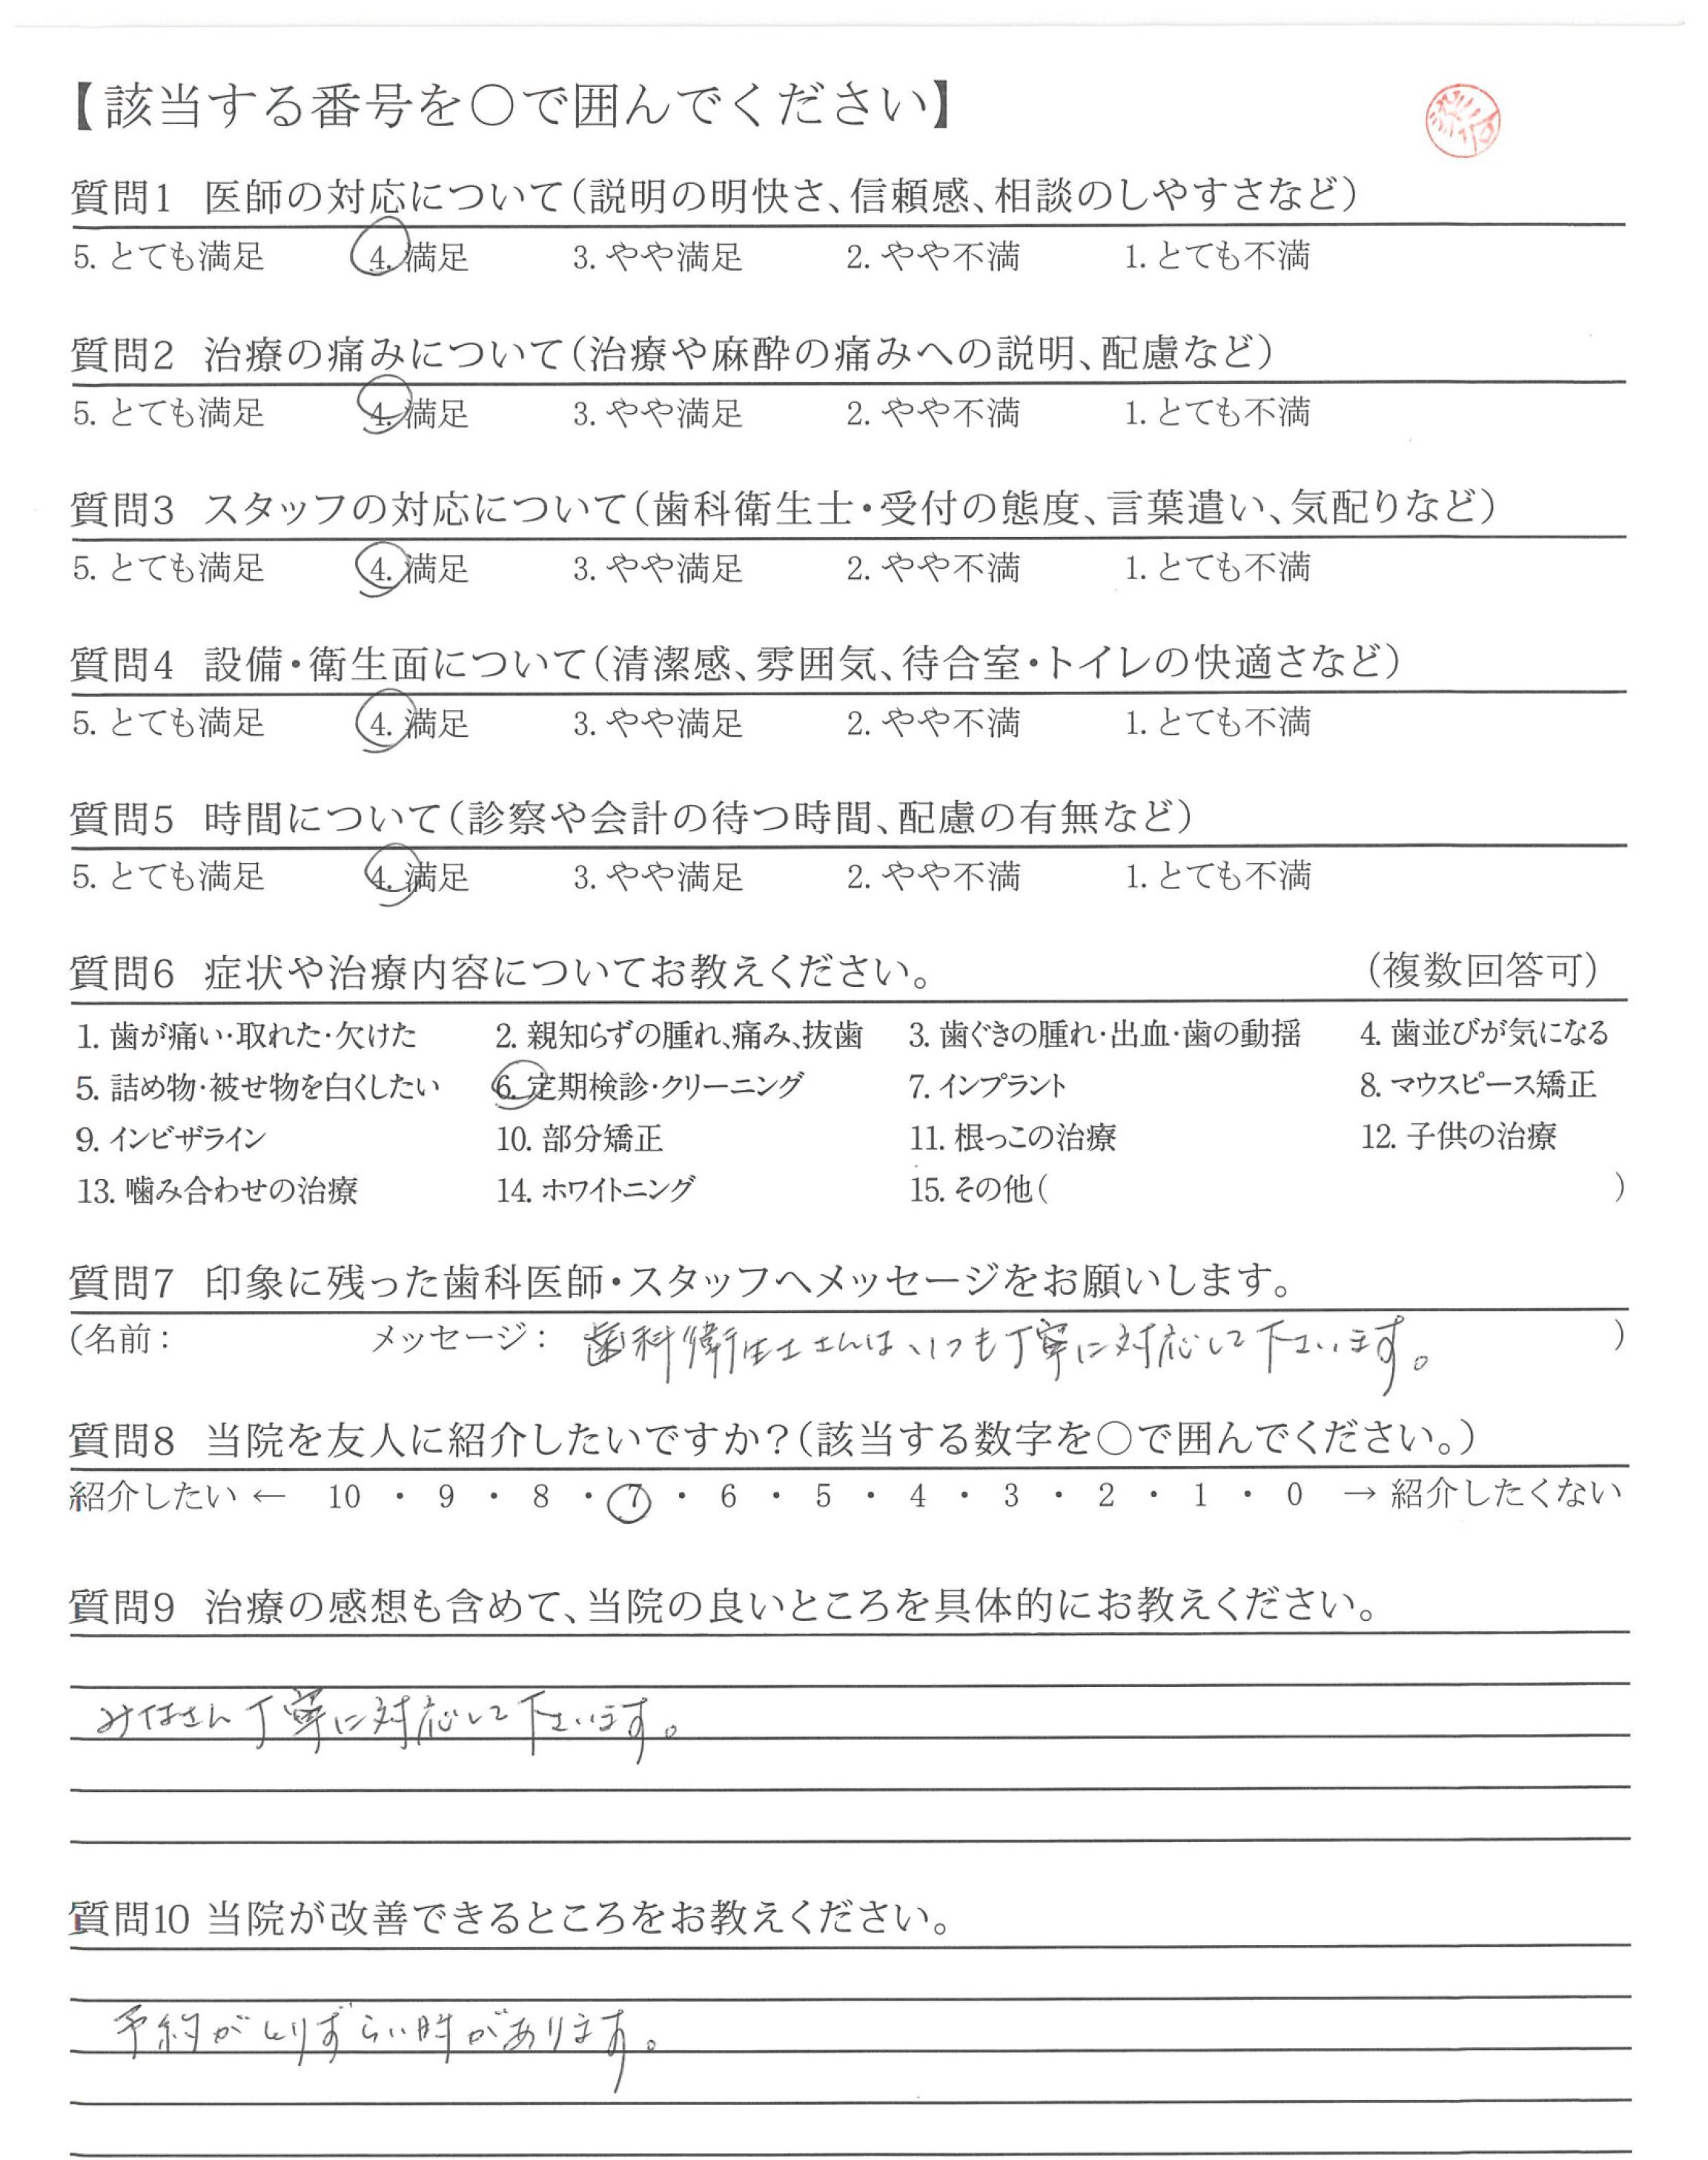 【該当する番号を〇で囲んでください】
質問1 医師の対応について(説明の明快さ、信頼感、相談のしやすさなど)
5. とても満足 4. 満足 3. やや満足 2. やや不満 1. とても不満
質問2 治療の痛みについて(治療や麻酔の痛みへの説明、配慮など)
5. とても満足 4. 満足 3. やや満足 2. やや不満 1. とても不満
質問3 スタッフの対応について(歯科衛生士・受付の態度、言葉遣い、気配りなど)
5. とても満足 4. 満足 3. やや満足 2. やや不満 1. とても不満
質問4 設備・衛生面について(清潔感、雰囲気、待合室・トイレの快適さなど)
5. とても満足 4. 満足 3. やや満足 2. やや不満 1. とても不満
質問5 時間について(診察や会計の待つ時間、配慮の有無など)
5. とても満足 4. 満足 3. やや満足 2. やや不満 1. とても不満
質問6 症状や治療内容についてお教えください。 (複数回答可)
1. 歯が痛い・取れた・欠けた 2. 親知らずの腫れ、痛み、抜歯 3. 歯ぐきの腫れ・出血・歯の動揺 4. 歯並びが気になる
5. 詰め物・被せ物を白くしたい 6. 定期検診・クリーニング 7. インプラント 8. マウスピース矯正
9. インビザライン 10. 部分矯正 11. 根っこの治療 12. 子供の治療
13. 噛み合わせの治療 14. ホワイトニング 15. その他( )
質問7 印象に残った歯科医師・スタッフへメッセージをお願いします。
(名前: メッセージ: 歯科衛生士さんは、いつも丁寧に対応して下さいます。 )
質問8 当院を友人に紹介したいですか?(該当する数字を〇で囲んでください。)
紹介したい ← 10 ・ 9 ・ 8 ・ 7 ・ 6 ・ 5 ・ 4 ・ 3 ・ 2 ・ 1 ・ 0 → 紹介したくない
質問9 治療の感想も含めて、当院の良いところを具体的にお教えください。
みなさん丁寧に対応して下さいます。
質問10 当院が改善できるところをお教えください。
予約がとりずらい時があります。